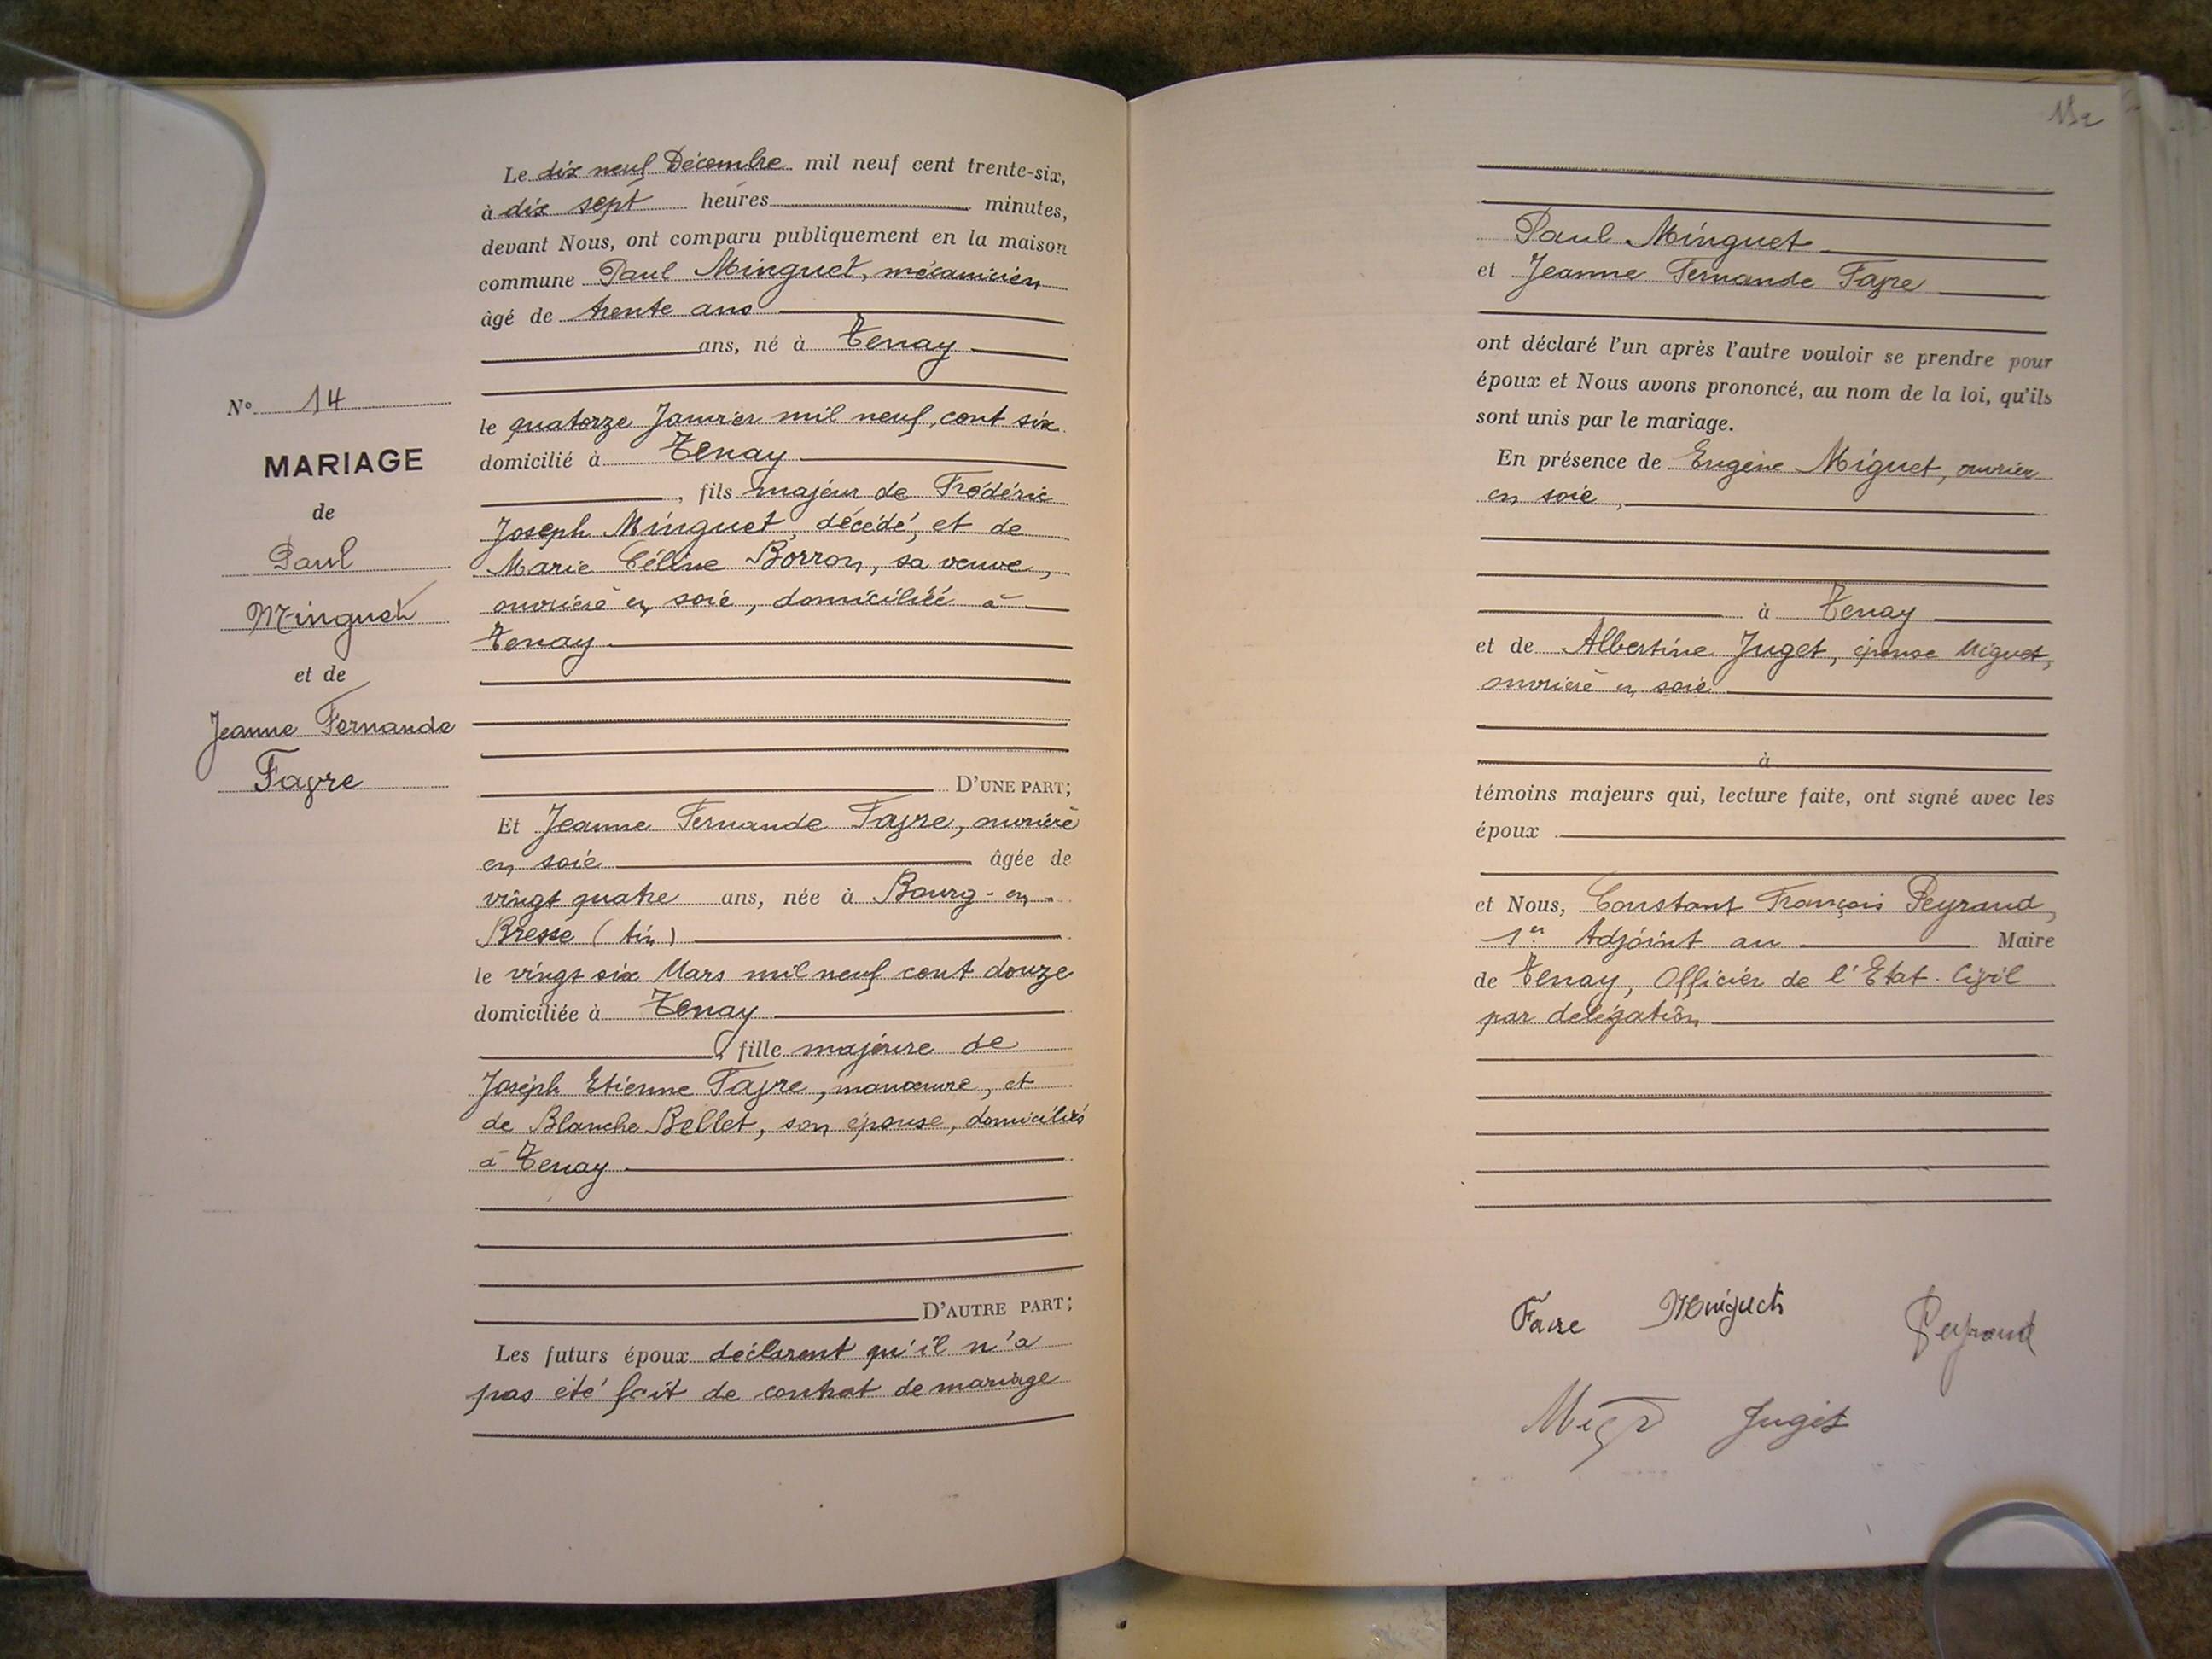 Le dix neuf Décembre mil neuf cent trente-six,
à dix sept heures minutes,
devant Nous, ont comparu publiquement en la maison
commune Paul Minguet, mécanicien
âgé de trente ans
ans, né à Tenay
le quatorze Janvier mil neuf cent six
domicilié à Tenay
, fils majeur de Frédéric
Joseph Minguet, décédé, et de
Marie Céline Borron, sa veuve,
ouvrière en soie, domiciliée à
Tenay
D'UNE PART;
Et Jeanne Fernande Favre, ouvrière
en soie âgée de
vingt quatre ans, née à Bourg-en-
Bresse (Ain)
le vingt six Mars mil neuf cent douze
domiciliée à Tenay
, fille majeure de
Joseph Etienne Favre, manœuvre, et
de Blanche Bellet, son épouse, domiciliés
à Tenay
D'AUTRE PART;
Les futurs époux déclarent qu'il n'a
pas été fait de contrat de mariage
N° 14
MARIAGE
de
Paul
Minguet
et de
Jeanne Fernande
Favre
Paul Minguet
et Jeanne Fernande Favre
ont déclaré l'un après l'autre vouloir se prendre pour
époux et Nous avons prononcé, au nom de la loi, qu'ils
sont unis par le mariage.
En présence de Eugène Miguet, ouvrier
en soie,
à Tenay
et de Albertine Juget, épouse Miguet,
ouvrière en soie
à
témoins majeurs qui, lecture faite, ont signé avec les
époux
et Nous, Constant François Peyraud,
1er Adjoint au Maire
de Tenay, Officier de l'Etat-Civil
par délégation
Favre Minguet Peyraud
Juget